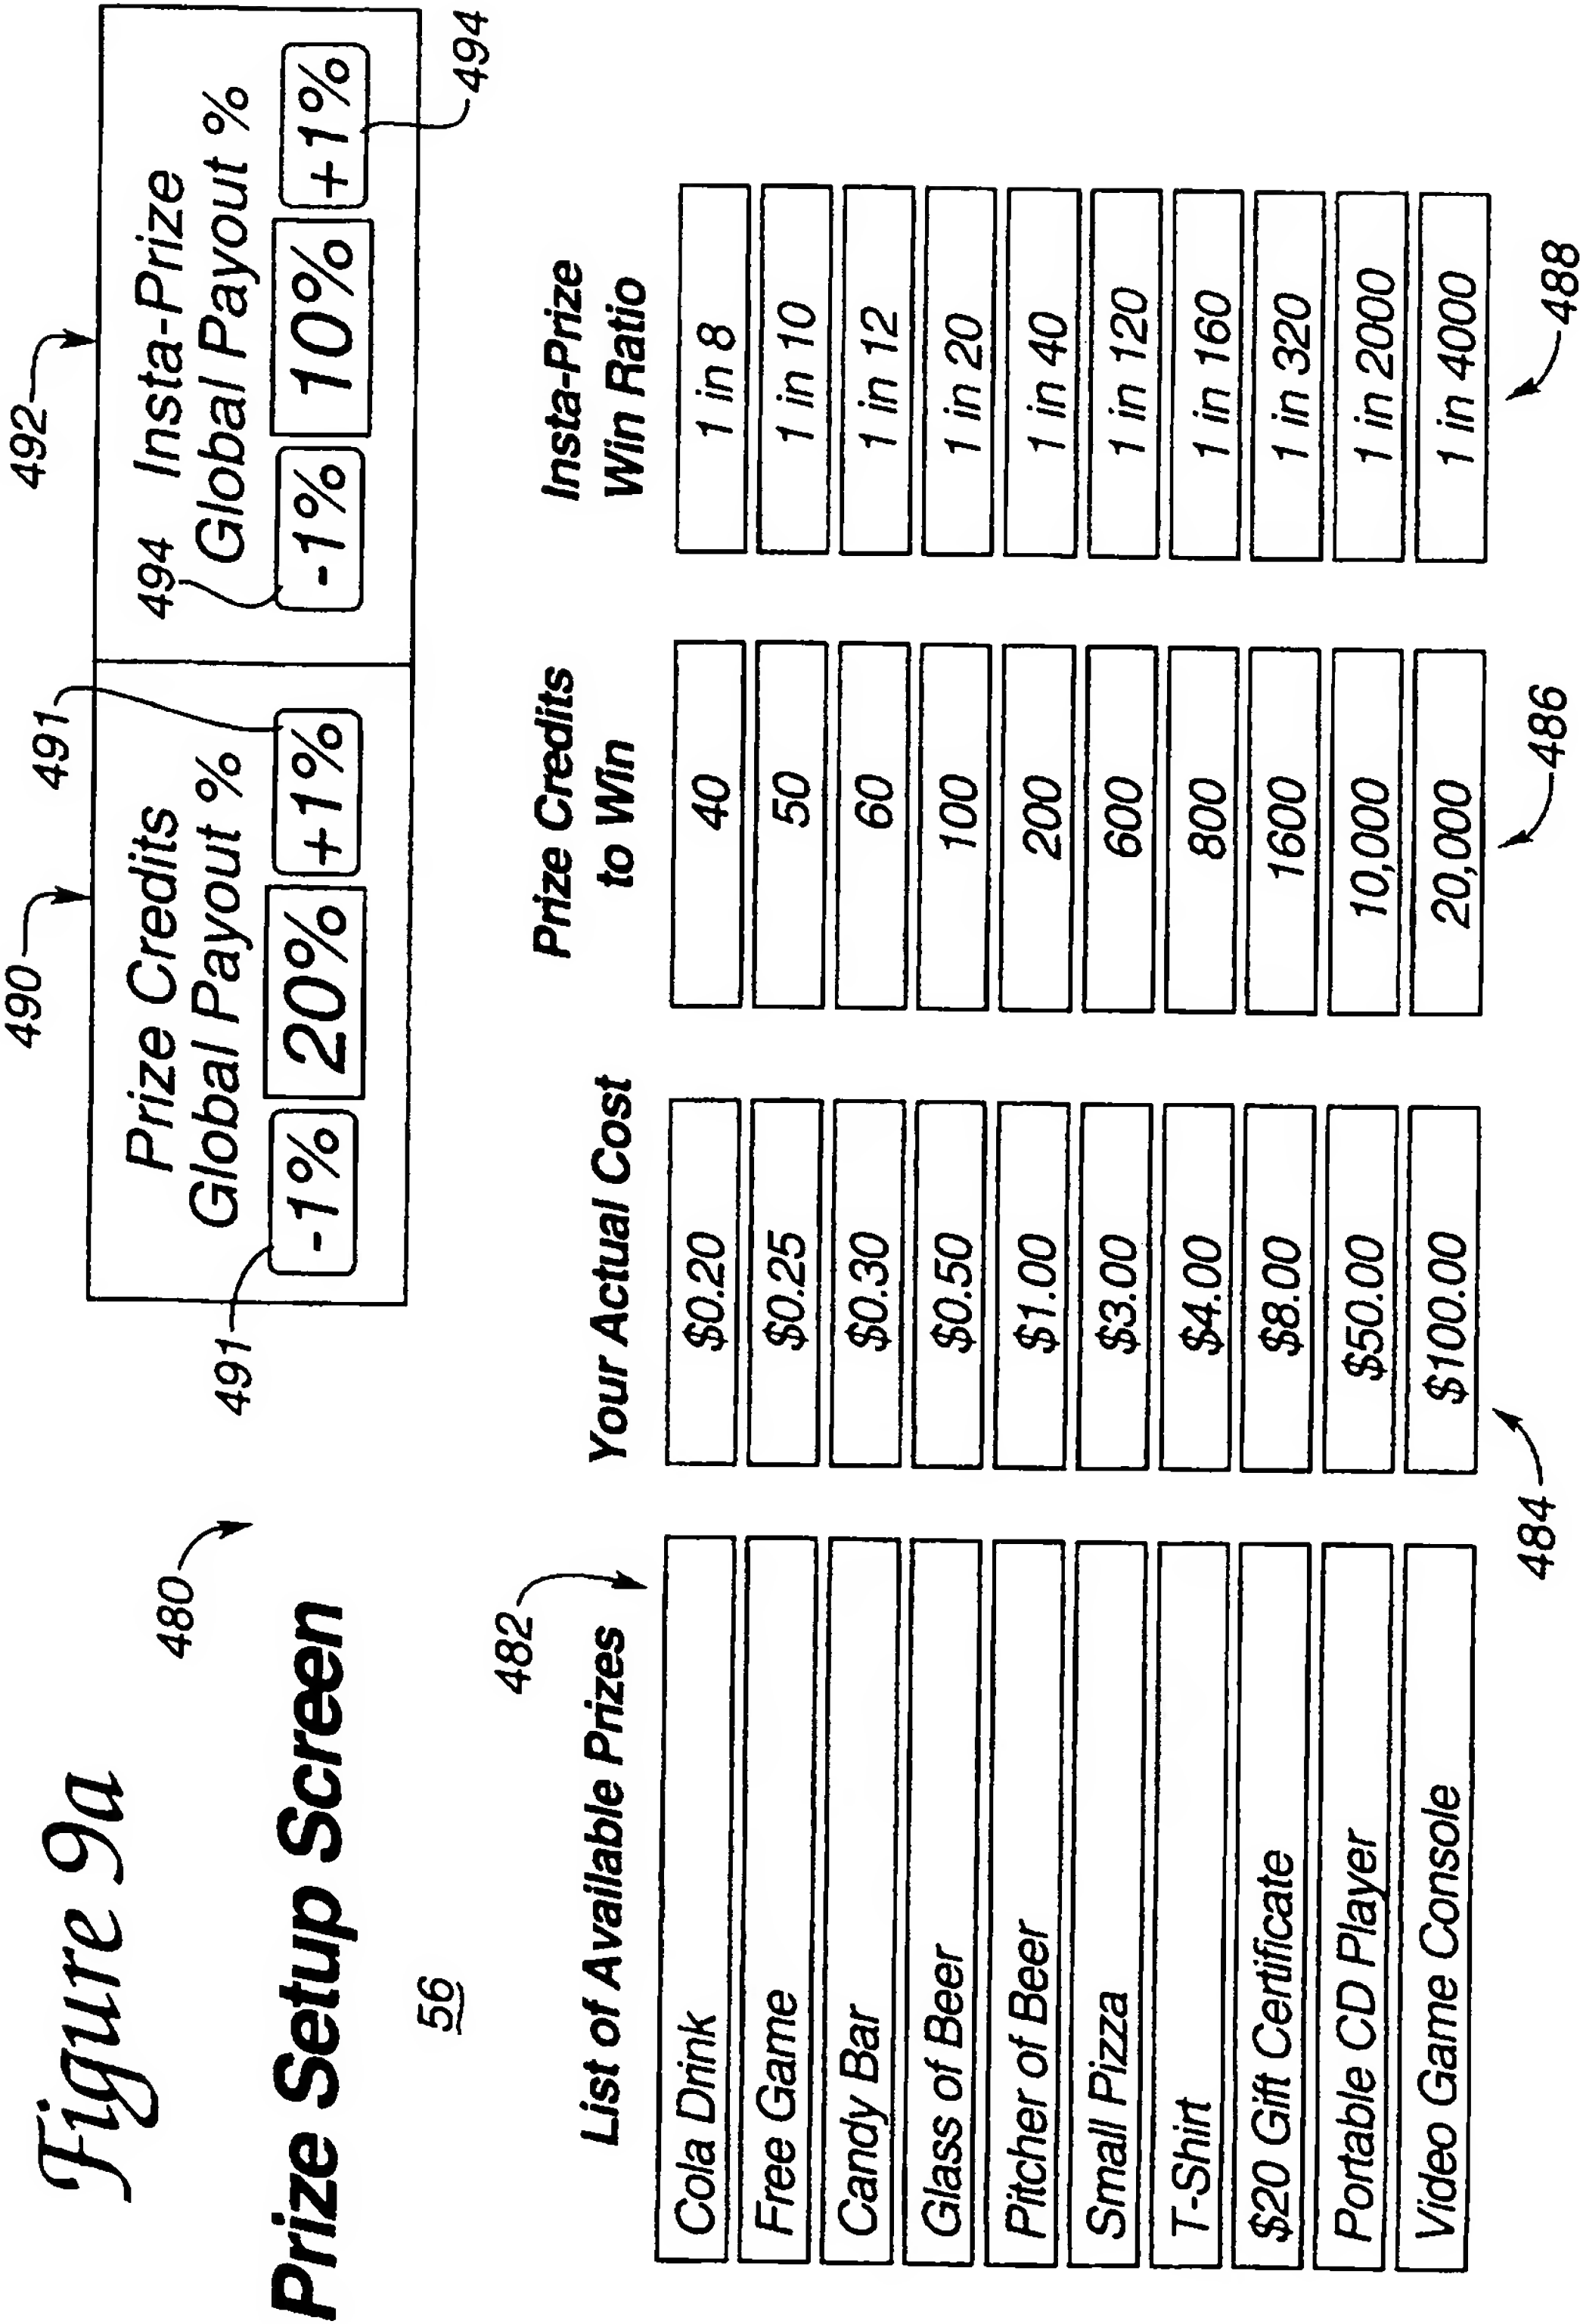 Figure 9a
480
Prize Setup Screen
56
490
492
491
491
494
494
Prize Credits
Global Payout %
-1% 20% +1%
Insta-Prize
Global Payout %
-1% 10% +1%
482
List of Available Prizes Your Actual Cost Prize Credits to Win Insta-Prize Win Ratio
Cola Drink $0.20 40 1 in 8
Free Game $0.25 50 1 in 10
Candy Bar $0.30 60 1 in 12
Glass of Beer $0.50 100 1 in 20
Pitcher of Beer $1.00 200 1 in 40
Small Pizza $3.00 600 1 in 120
T-Shirt $4.00 800 1 in 160
$20 Gift Certificate $8.00 1600 1 in 320
Portable CD Player $50.00 10,000 1 in 2000
Video Game Console $100.00 20,000 1 in 4000
484
486
488